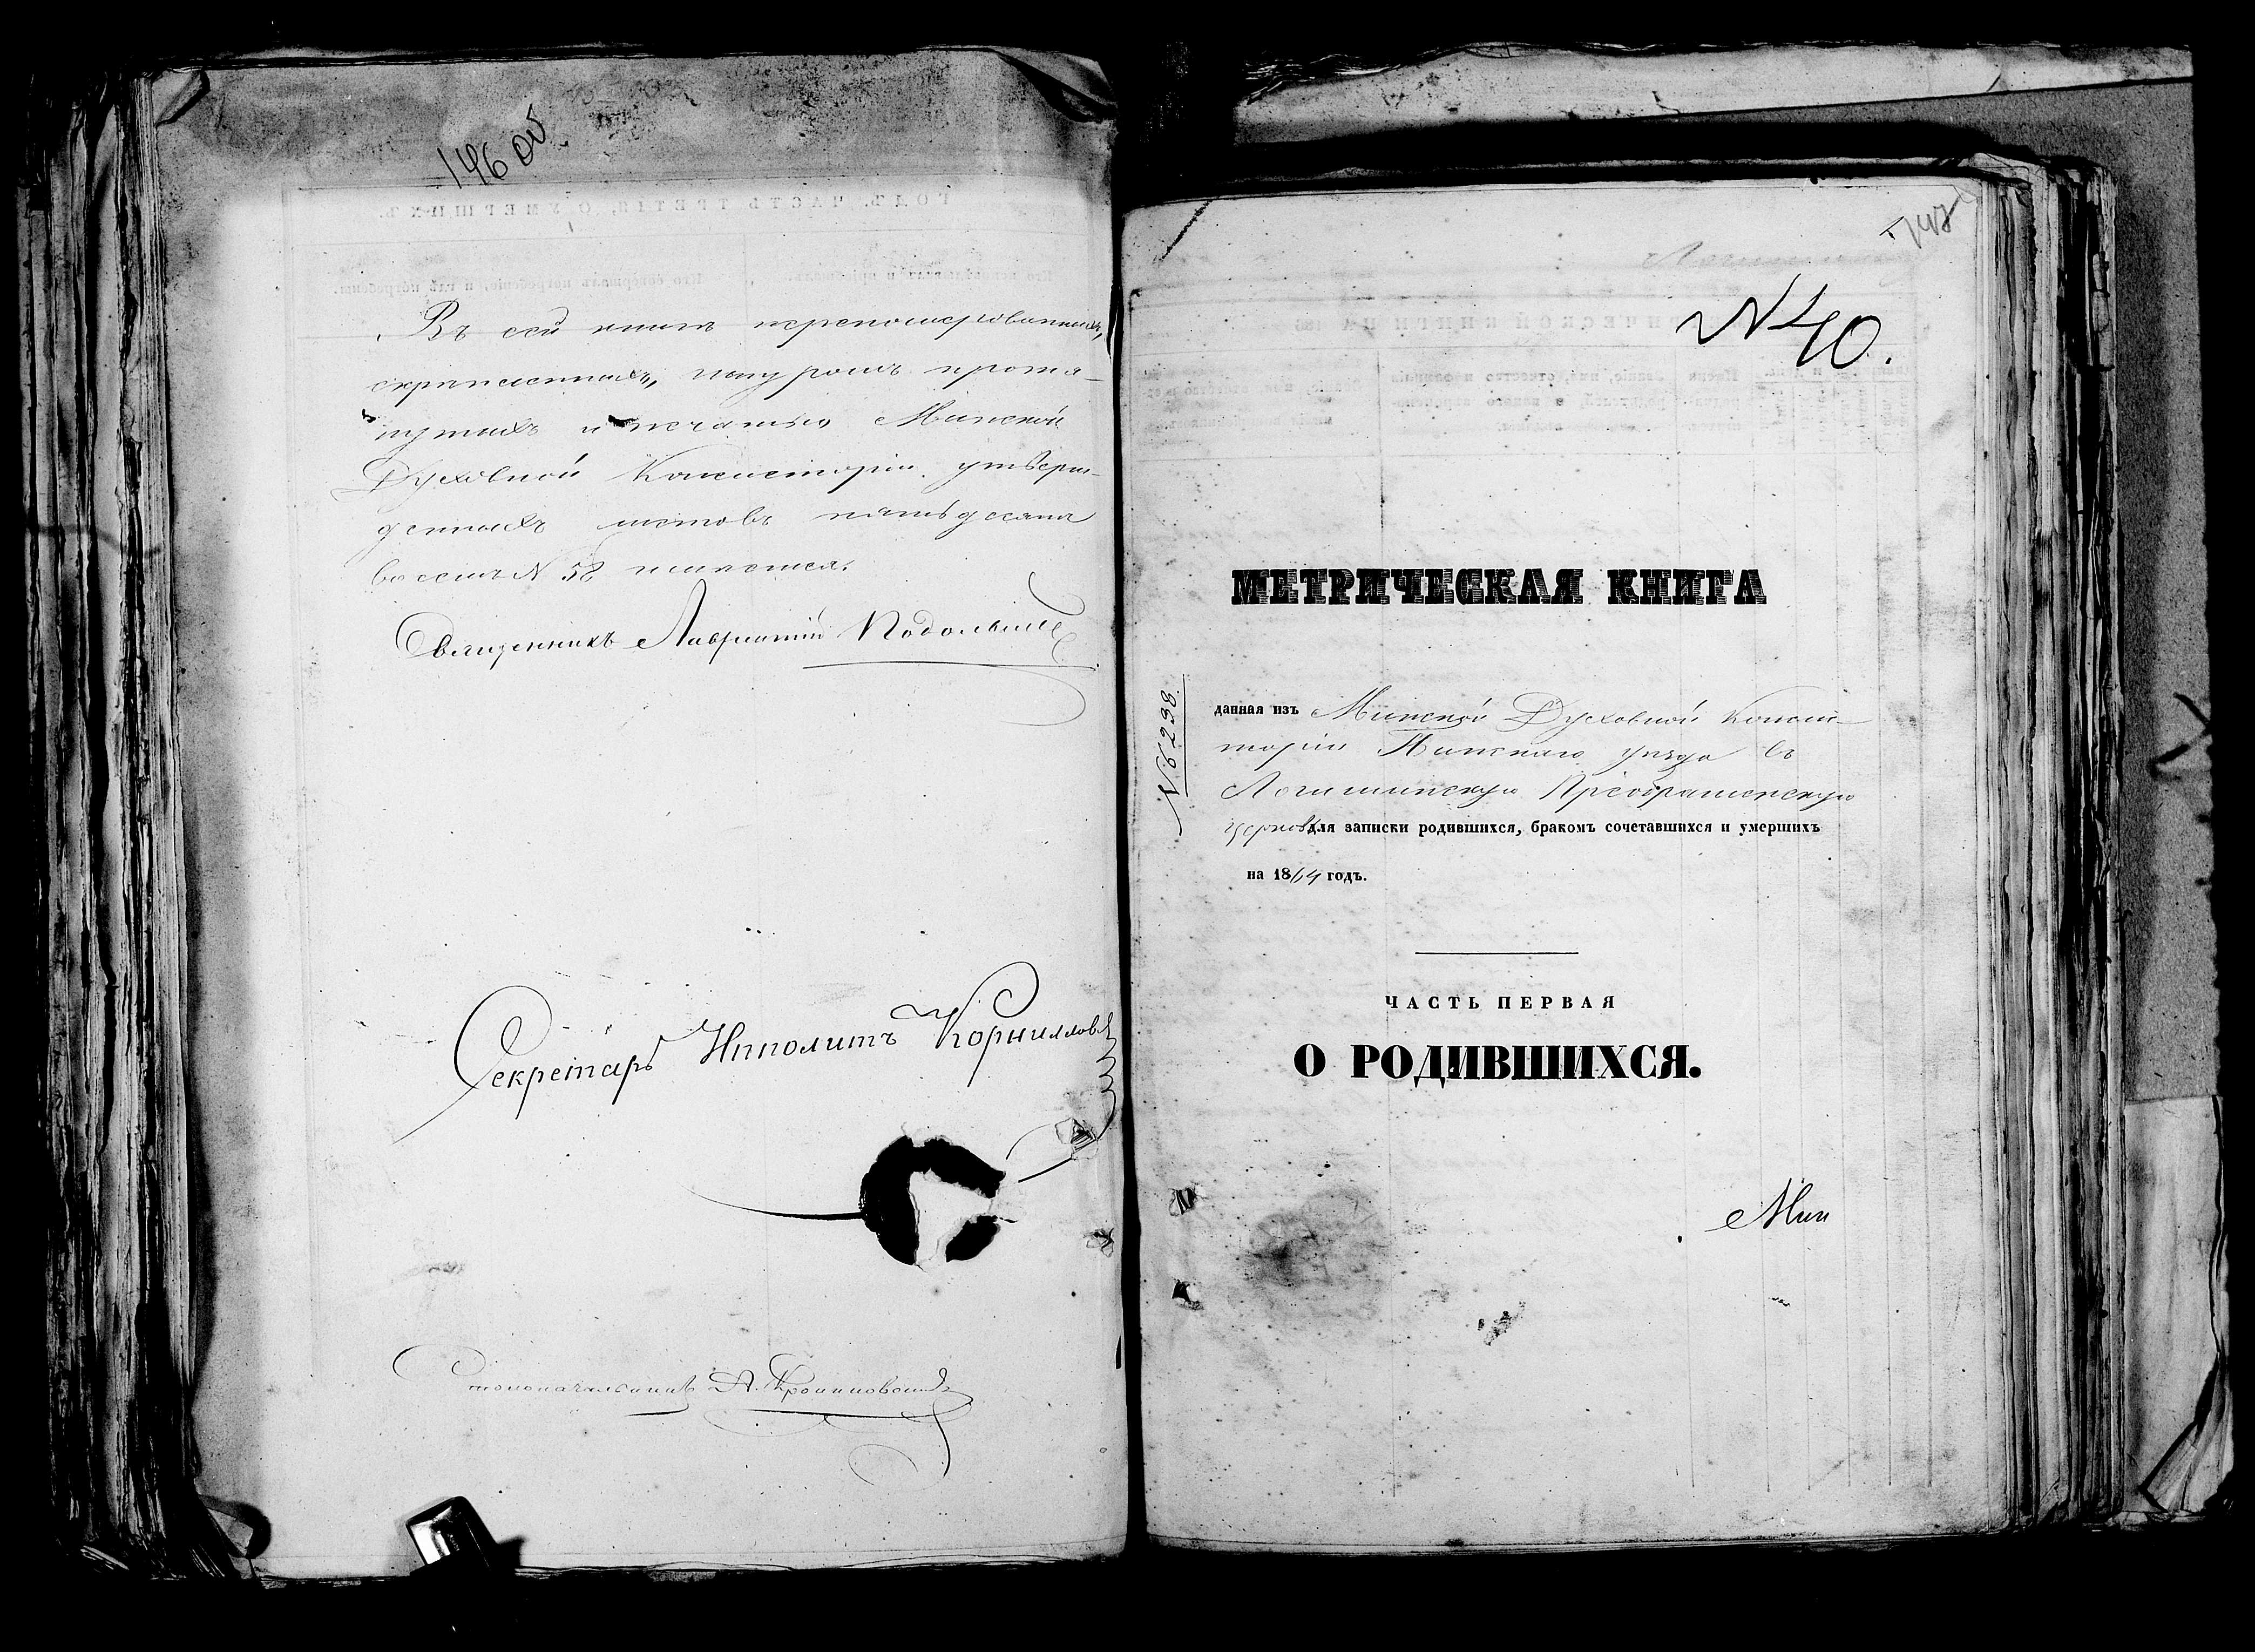 146 об
Въ сей книгѣ перенумерованныхъ,
скрѣпленныхъ, шнуромъ протя-
нутыхъ и печатью Минской
Духовной Консисторіи утверж-
денныхъ листовъ пятьдесятъ
восемь N 58 имѣется.
Священникъ Лаврентій
Секретарь Ипполитъ Корниловъ
Столоначальникъ А.
147
N 40.
МЕТРИЧЕСКАЯ КНИГА
N 6298
данная изъ Минской Духовной Консис-
торіи Пинскаго уѣзда въ
Логишинскую Преображенскую
церковь для записки родившихся, бракомъ сочетавшихся и умершихъ
на 1864 годъ.
ЧАСТЬ ПЕРВАЯ
О РОДИВШИХСЯ.
Мин